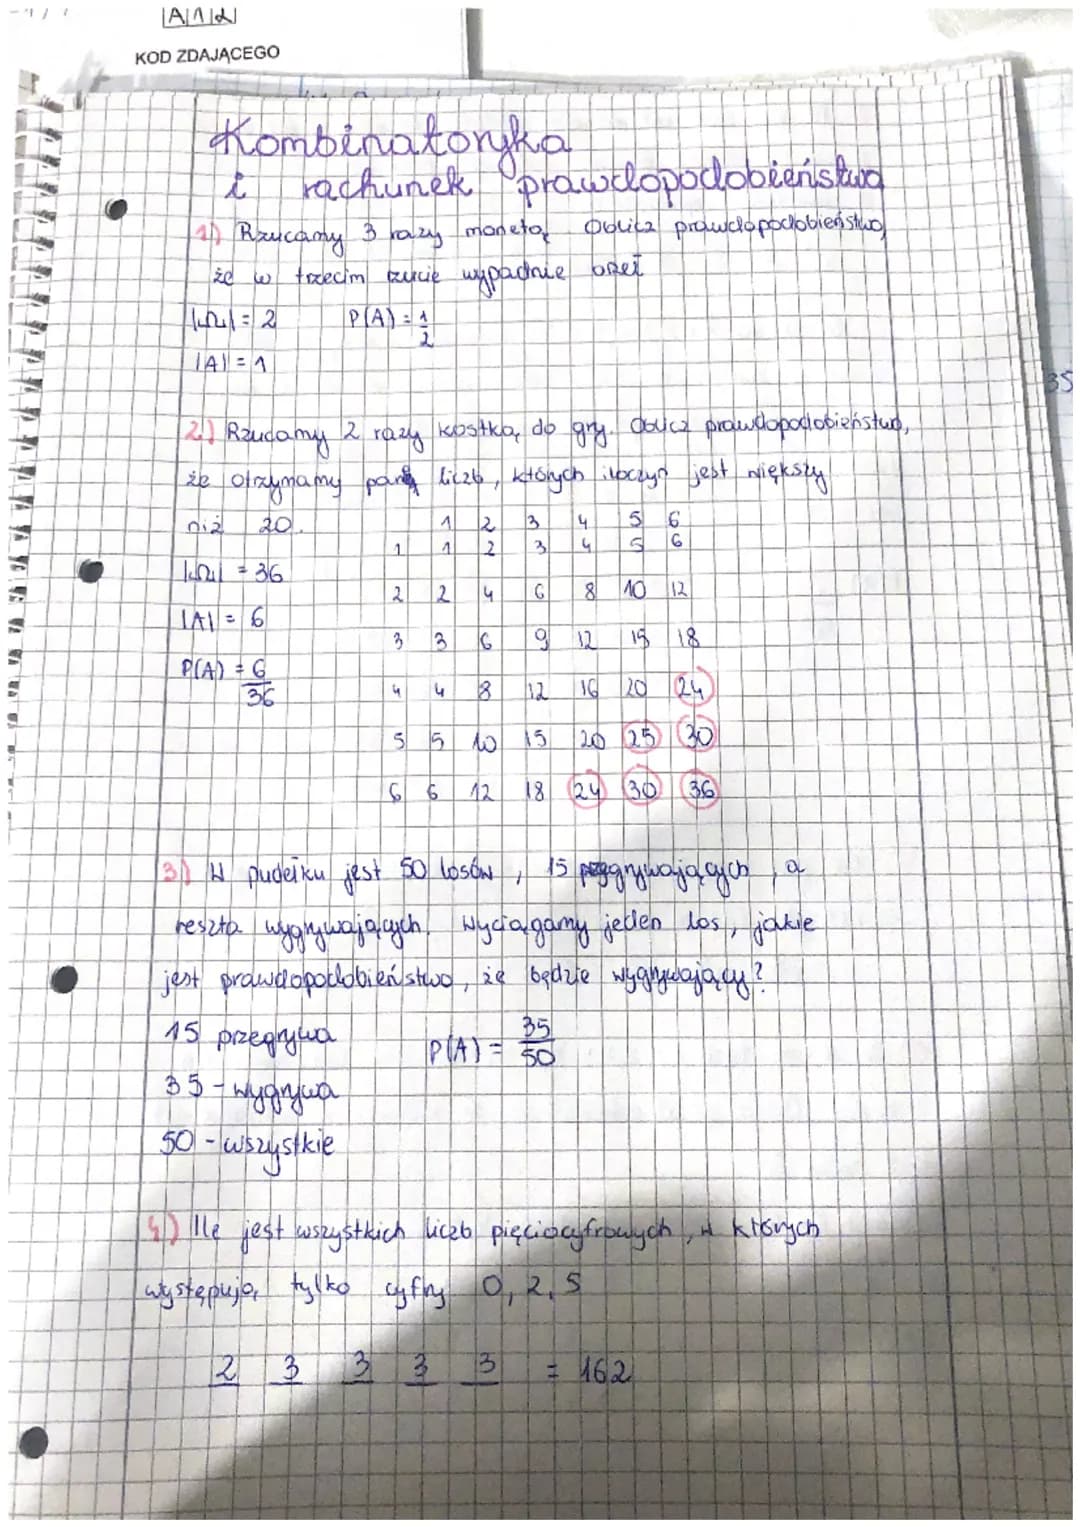 KOD ZDAJĄCEGO
Kombinatoryka
i rachunek prawdopodobieństwa
1) Rzucamy 3 razy monetą. Oblicz prawdopodobieństwo,
że w trzecim rzucie wypadnie orzeł
|Ω| = 2 P(A) = 1/2
|A| = 1
35
2.) Rzucamy 2 razy kostką do gry. Oblicz prawdopodobieństwo,
że otrzymamy parę liczb, których iloczyn jest większy
niż 20.
1 2 3 4 5 6
1 1 2 3 4 5 6
|Ω| = 36
2 2 4 6 8 10 12
|A| = 6
3 3 6 9 12 15 18
P(A) = 6/36
4 4 8 12 16 20 24
5 5 10 15 20 25 30
6 6 12 18 24 30 36
3) W pudełku jest 50 losów, 15 przegrywających, a
reszta wygrywających. Wyciągamy jeden los, jakie
jest prawdopodobieństwo, że będzie wygrywający?
15 przegrywa P(A) = 35/50
35 - wygrywa
50 - wszystkie
4) Ile jest wszystkich liczb pięciocyfrowych, w których
występują tylko cyfry 0, 2, 5
2 3 3 3 3 = 162